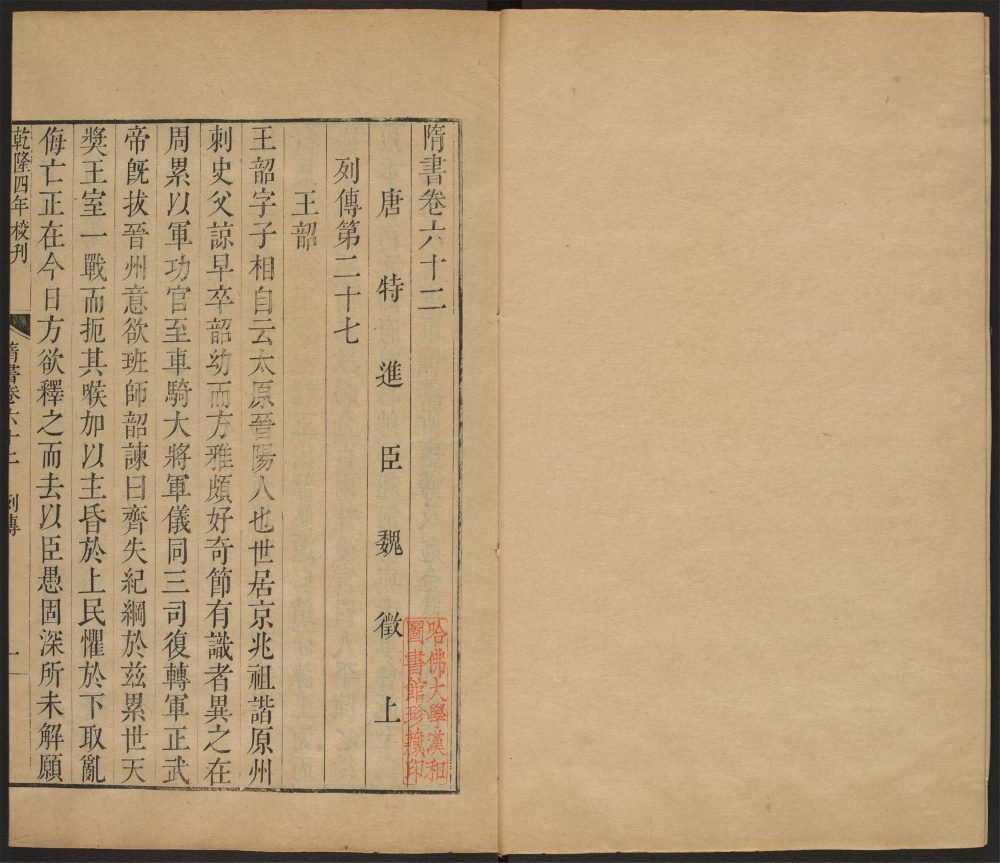 隋書卷六十二
唐特進臣魏徵上
列傳第二十七
王韶
王韶字子相自云太原晉陽人也世居京兆祖諧原州
刺史父諒早卒韶幼而方雅頗好奇節有識者異之在
周累以軍功官至車騎大將軍儀同三司復轉軍正武
帝旣拔晉州意欲班師韶諫曰齊失紀綱於兹累世天
奬王室一戰而扼其喉加以主昏於上民懼於下取亂
侮亡正在今日方欲釋之而去以臣愚固深所未解願
乾隆四年校刊
隋書卷六十二 列傳
一
哈佛大學漢和
圖書館珍藏印